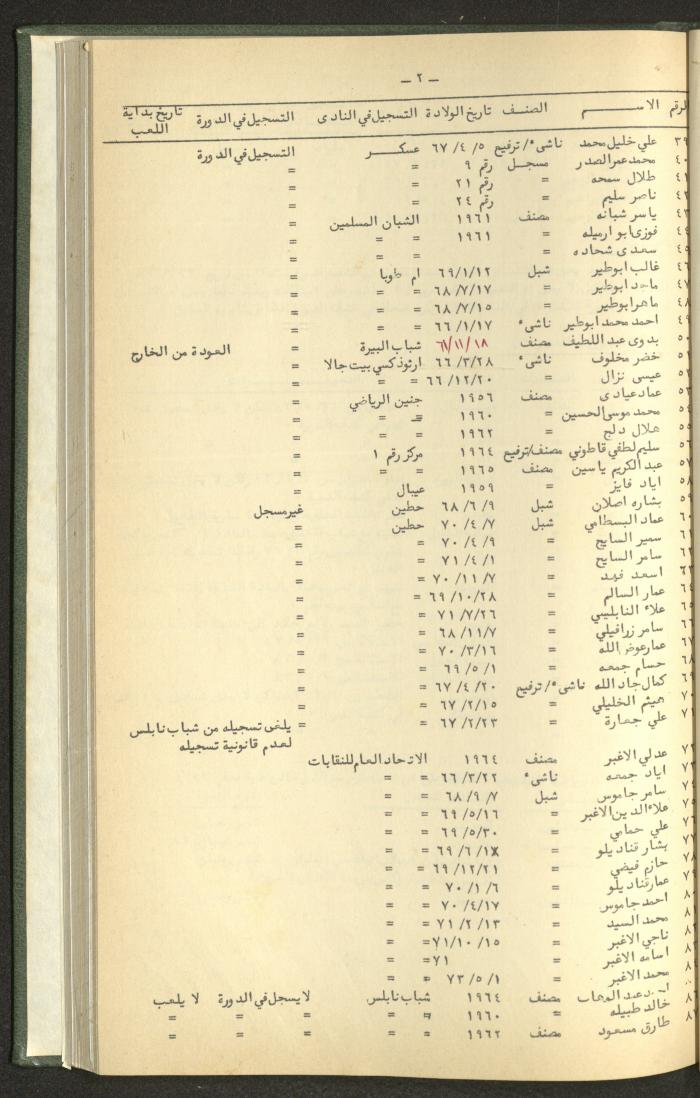 - ٢ -
الرقم الاســـــم الصنف تاريخ الولادة التسجيل في النادى التسجيل في الدورة تاريخ بداية اللعب
٣٩ علي خليل محمد ناشىء/ ترفيع ٥/ ٤/ ٦٧ عسكـــر التسجيل في الدورة
٤٠ محمد عمر الصدر مسجـل رقم ٩ = =
٤١ طلال سمحه = رقم ٢١ = =
٤٢ ناصر سليم = رقم ٢٤ = =
٤٣ ياسر شبانه مصنف ١٩٦١ الشبان المسلمين =
٤٤ فوزى ابو ارميله = ١٩٦١ = = =
٤٥ سعدى شحاده = = = =
٤٦ غالب ابوطير شبل ٦٩/١/١٢ ام طوبا =
٤٧ ماجد ابوطير = ٦٨/٧/١٧ = = =
٤٨ ماهر ابوطير = ٦٨/٧/١٥ = = =
٤٩ احمد محمد ابوطير ناشىء ٦٦/١/١٧ = = =
٥٠ بدوى عبد اللطيف مصنف ٦١/١١/١٨ شباب البيرة = العودة من الخارج
٥١ خضر مخلوف ناشىء ٦٦/٣/٢٨ ارثوذكسي بيت جالا =
٥٢ عيسى نزال = ٦٦/١٢/٢٠ = = =
٥٣ عماد عيادى مصنف ١٩٥٦ جنين الرياضي =
٥٤ محمد موسى الحسين = ١٩٦٠ = = =
٥٥ هلال دلج = ١٩٦٢ = = =
٥٦ سليم لطفي قاطوني مصنف/ترفيع ١٩٦٤ مركز رقم ١ =
٥٧ عبد الكريم ياسين مصنف ١٩٦٥ = = =
٥٨ اياد فايز = ١٩٥٩ عيبال =
٥٩ بشاره اصلان شبل ٦٨/٦/٩ حطين غير مسجل
٦٠ عماد البسطامي شبل ٧٠/٤/٧ حطين =
٦١ سمير السايح = ٧٠/٤/٩ = =
٦٢ سامر السايح = ٧١/٤/١ = =
٦٣ اسعد فهد = ٧٠/١١/٧ = =
٦٤ عمار السالم = ٦٩/١٠/٢٨ = =
٦٥ علاء النابلسي = ٧١/٧/٢٦ = =
٦٦ سامر زرافيلي = ٦٨/١١/٧ = =
٦٧ عمار عوض الله = ٧٠/٣/١٦ = =
٦٨ حسام جمعه = ٦٩/٥/١ = =
٦٩ كمال جاد الله ناشىء/ ترفيع ٦٧/٤/٢٠ = =
٧٠ هيثم الخليلي = ٦٧/٢/١٥ = =
٧١ علي جعارة = ٦٧/٢/٢٣ = = يلغى تسجيله من شباب نابلس
لعدم قانونية تسجيله
٧٢ عدلي الاغبر مصنف ١٩٦٤ الاتحاد العام للنقابات
٧٣ اياد جمعه ناشىء ٦٦/٣/٢٢ = = =
٧٤ سامر جاموس شبل ٦٨/٩/٧ = = =
٧٥ علاء الدين الاغبر = ٦٩/٥/١٦ = = =
٧٦ علي حمامي = ٦٩/٥/٣٠ = = =
٧٧ بشار قناديلو = = = =
٧٨ حازم فيضي = ٦٩/١٢/٢١ = = =
٧٩ عمار قناديلو = ٧٠/١/٦ = = =
٨٠ احمد جاموس = ٧٠/٤/١٧ = = =
٨١ محمد السيد = ٧١/٢/١٣ = = =
٨٢ ناجي الاغبر = ٧١/١٠/١٥ = = =
٨٣ اسامه الاغبر = ٧١ = = =
٨٤ محمد الاغبر = ٧٣/٥/١ = = =
عبد الوهاب مصنف ١٩٦٤ شباب نابلس لا يسجل في الدورة لا يلعب
٨٦ خالد طبيله = ١٩٦٠ = = = =
٨٧ طارق مسعود مصنف ١٩٦٢ = = = =